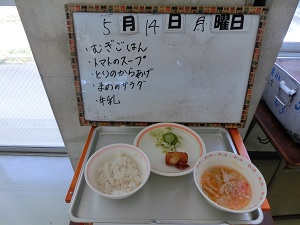 5月14日月曜日
・むぎごはん
・トマトのスープ
・とりのからあげ
・まめのサラダ
・牛乳